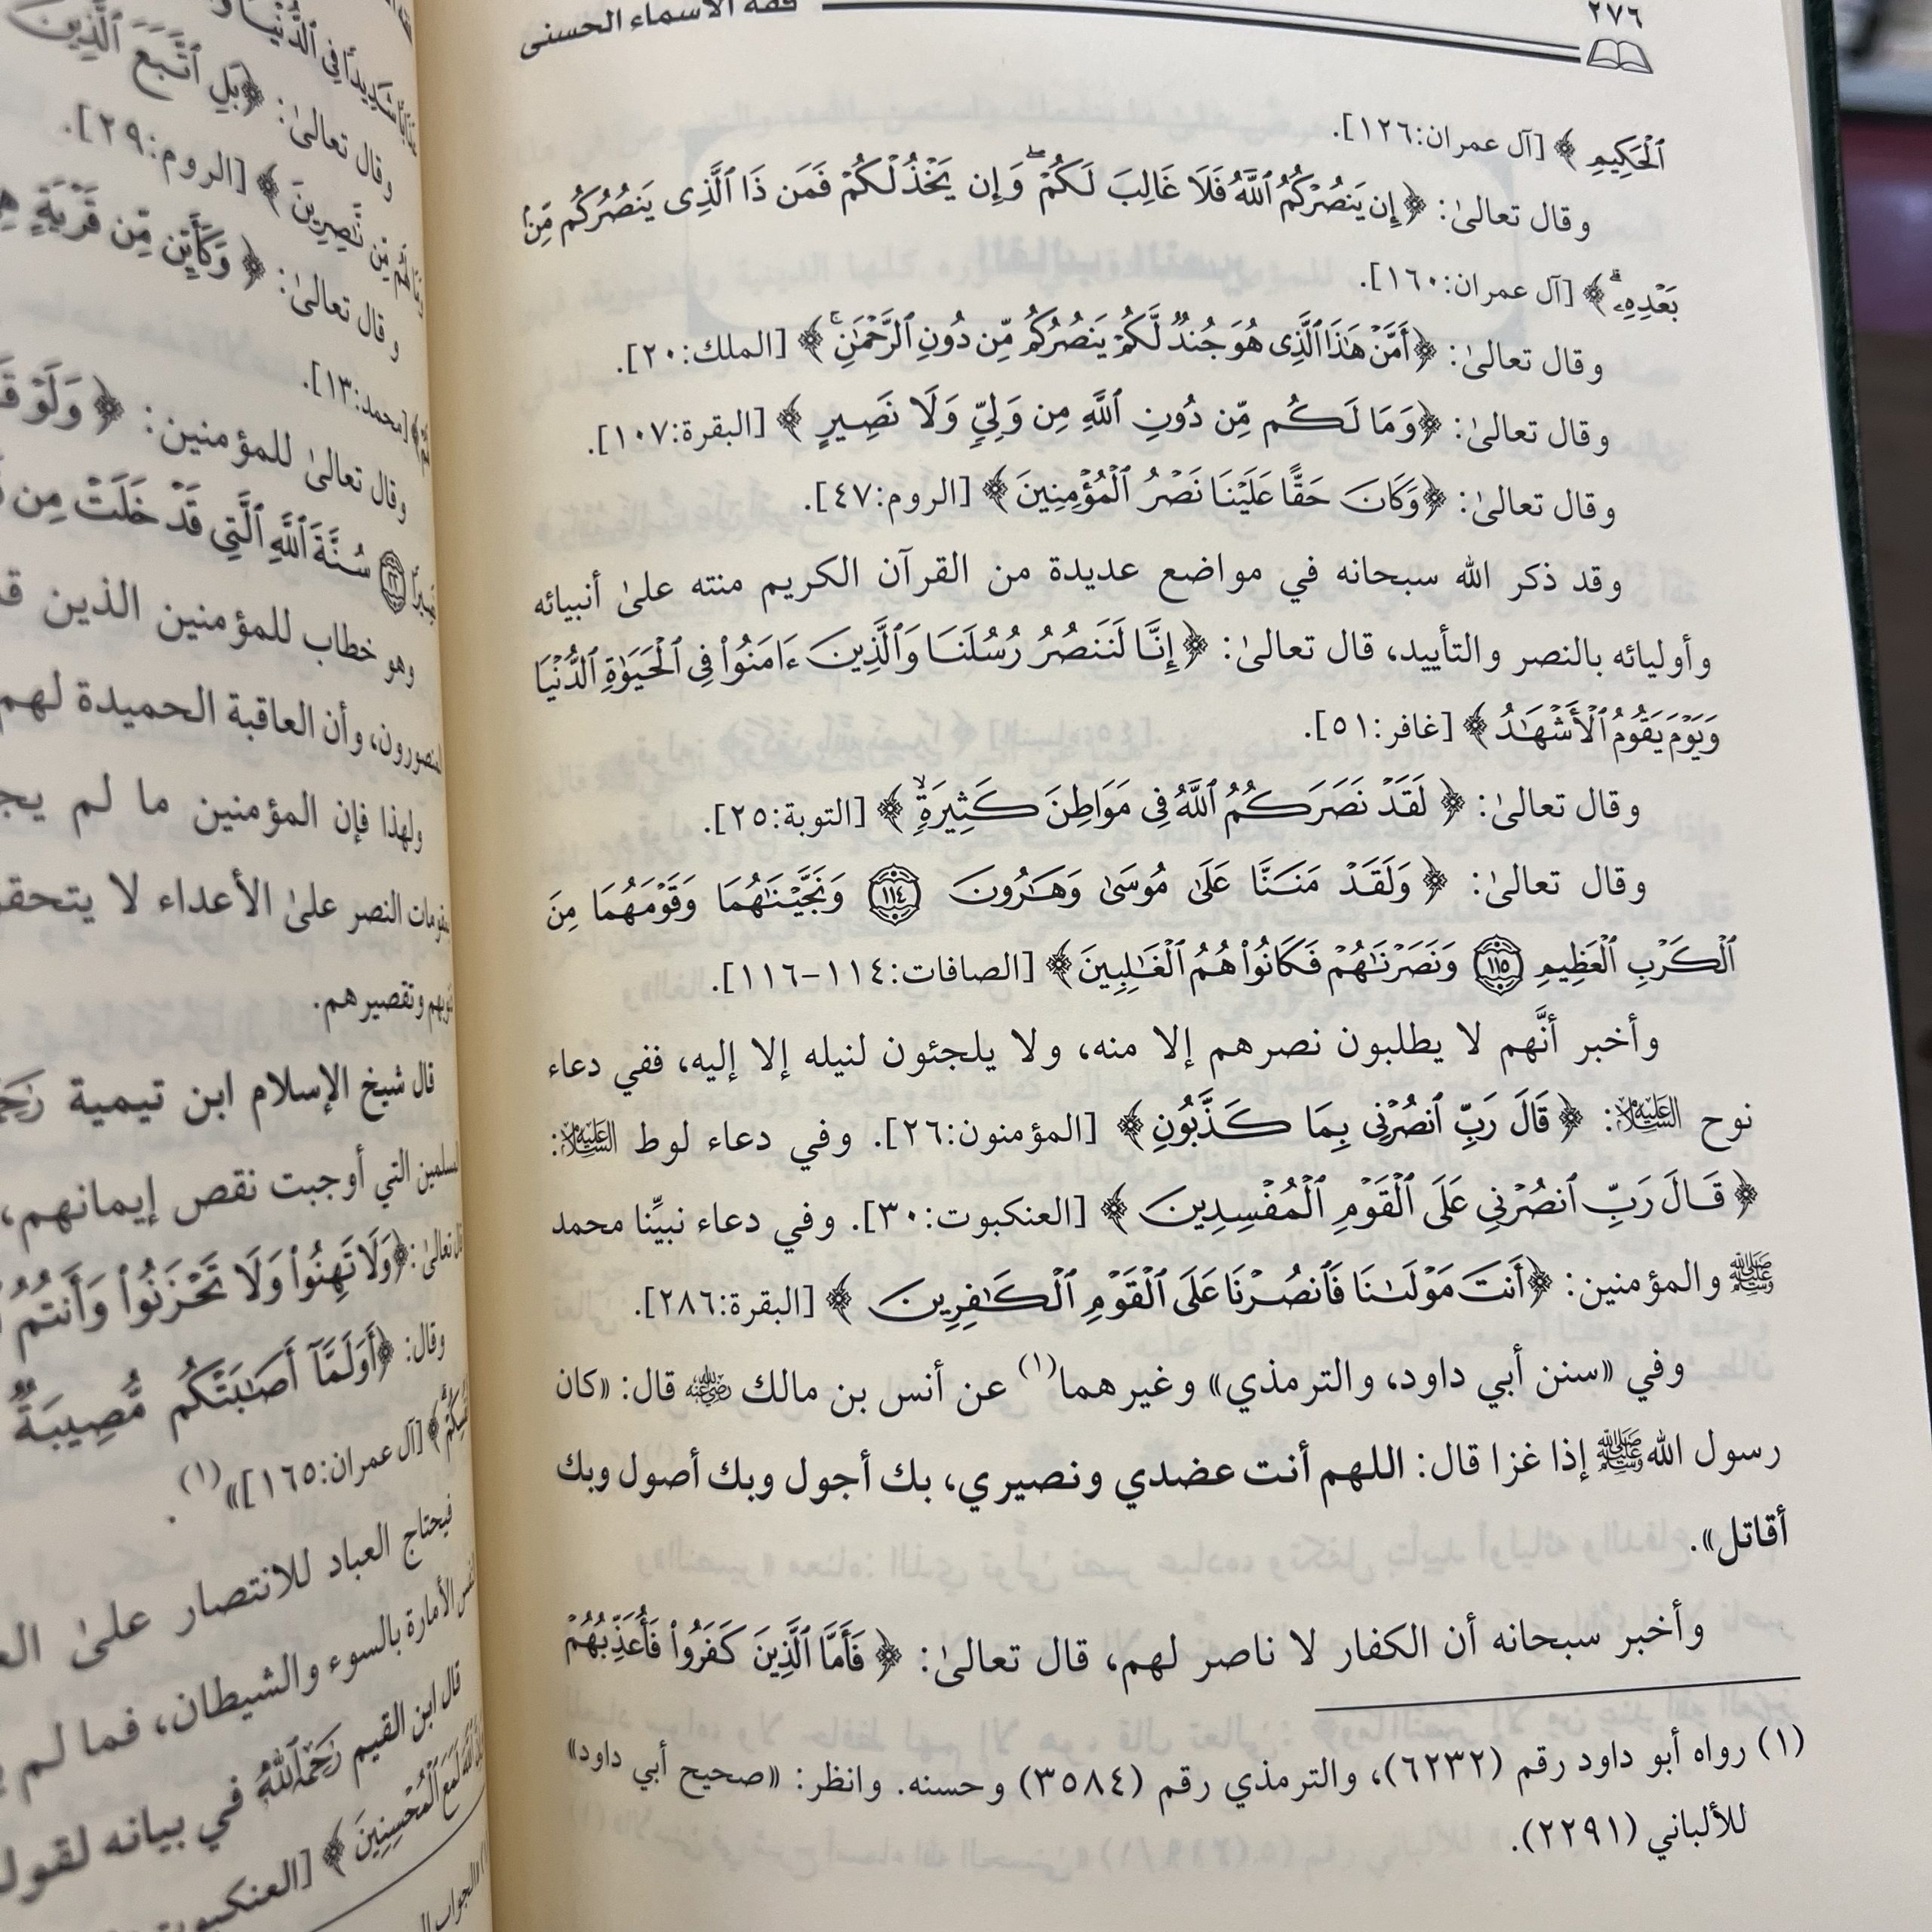 ٢٧٦
فقه الأسماء الحسنى
ٱلْحَكِيمِ ﴾ [آل عمران:١٢٦].
وقال تعالىٰ: ﴿إِن يَنصُرْكُمُ ٱللَّهُ فَلَا غَالِبَ لَكُمْ ۖ وَإِن يَخْذُلْكُمْ فَمَن ذَا ٱلَّذِى يَنصُرُكُم مِّنۢ
بَعْدِهِۦ ۗ﴾ [آل عمران:١٦٠].
وقال تعالىٰ: ﴿أَمَّنْ هَٰذَا ٱلَّذِى هُوَ جُندٌ لَّكُمْ يَنصُرُكُم مِّن دُونِ ٱلرَّحْمَٰنِ ۚ﴾ [الملك:٢٠].
وقال تعالىٰ: ﴿وَمَا لَكُم مِّن دُونِ ٱللَّهِ مِن وَلِىٍّ وَلَا نَصِيرٍ ﴾ [البقرة:١٠٧].
وقال تعالىٰ: ﴿وَكَانَ حَقًّا عَلَيْنَا نَصْرُ ٱلْمُؤْمِنِينَ ﴾ [الروم:٤٧].
وقد ذكر الله سبحانه في مواضع عديدة من القرآن الكريم منته علىٰ أنبيائه
وأوليائه بالنصر والتأييد، قال تعالىٰ: ﴿إِنَّا لَنَنصُرُ رُسُلَنَا وَٱلَّذِينَ ءَامَنُوا۟ فِى ٱلْحَيَوٰةِ ٱلدُّنْيَا
وَيَوْمَ يَقُومُ ٱلْأَشْهَٰدُ ﴾ [غافر:٥١].
وقال تعالىٰ: ﴿ لَقَدْ نَصَرَكُمُ ٱللَّهُ فِى مَوَاطِنَ كَثِيرَةٍ ۙ ﴾ [التوبة:٢٥].
وقال تعالىٰ: ﴿ وَلَقَدْ مَنَنَّا عَلَىٰ مُوسَىٰ وَهَٰرُونَ ١١٤ وَنَجَّيْنَٰهُمَا وَقَوْمَهُمَا مِنَ
ٱلْكَرْبِ ٱلْعَظِيمِ ١١٥ وَنَصَرْنَٰهُمْ فَكَانُوا۟ هُمُ ٱلْغَٰلِبِينَ ﴾ [الصافات:١١٤-١١٦].
وأخبر أنَّهم لا يطلبون نصرهم إلا منه، ولا يلجئون لنيله إلا إليه، ففي دعاء
نوح عليه السلام: ﴿ قَالَ رَبِّ ٱنصُرْنِى بِمَا كَذَّبُونِ ﴾ [المؤمنون:٢٦]. وفي دعاء لوط عليه السلام:
﴿ قَالَ رَبِّ ٱنصُرْنِى عَلَى ٱلْقَوْمِ ٱلْمُفْسِدِينَ ﴾ [العنكبوت:٣٠]. وفي دعاء نبيِّنا محمد
ﷺ والمؤمنين: ﴿أَنتَ مَوْلَىٰنَا فَٱنصُرْنَا عَلَى ٱلْقَوْمِ ٱلْكَٰفِرِينَ ﴾ [البقرة:٢٨٦].
وفي «سنن أبي داود، والترمذي» وغيرهما(١) عن أنس بن مالك رضي الله عنه قال: «كان
رسول الله ﷺ إذا غزا قال: اللهم أنت عضدي ونصيري، بك أجول وبك أصول وبك
أقاتل».
وأخبر سبحانه أن الكفار لا ناصر لهم، قال تعالىٰ: ﴿ فَأَمَّا ٱلَّذِينَ كَفَرُوا۟ فَأُعَذِّبُهُمْ
(١) رواه أبو داود رقم (٦٢٣٢)، والترمذي رقم (٣٥٨٤) وحسنه. وانظر: «صحيح أبي داود»
للألباني (٢٢٩١).
شَدِيدًا فِى ٱلدُّنْيَا
وقال تعالىٰ: ﴿بَلِ ٱتَّبَعَ ٱلَّذِينَ
مِّن نَّٰصِرِينَ ﴾ [الروم:٢٩].
وقال تعالىٰ: ﴿ وَكَأَيِّن مِّن قَرْيَةٍ
[محمد:١٣].
وقال تعالىٰ للمؤمنين: ﴿ وَلَوْ
سُنَّةَ ٱللَّهِ ٱلَّتِى قَدْ خَلَتْ مِن
وهو خطاب للمؤمنين الذين
وأن العاقبة الحميدة لهم
ولهذا فإن المؤمنين ما لم
النصر علىٰ الأعداء لا
وتقصيرهم.
قال شيخ الإسلام ابن تيمية
التي أوجبت نقص إيمانهم،
تعالىٰ: ﴿وَلَا تَهِنُوا۟ وَلَا تَحْزَنُوا۟ وَأَنتُمُ
وقال: ﴿أَوَلَمَّآ أَصَٰبَتْكُم مُّصِيبَةٌ
[آل عمران:١٦٥]»(١).
فيحتاج العباد للانتصار علىٰ
الأمارة بالسوء والشيطان، فما لم
قال ابن القيم رحمه الله في بيانه
لَمَعَ ٱلْمُحْسِنِينَ ﴾